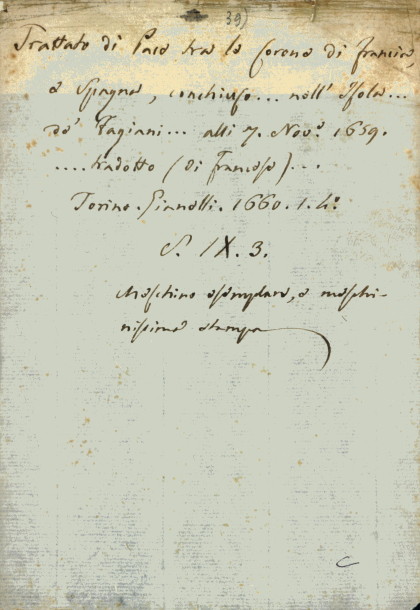 39)
Trattato di Pace tra le Corone di Francia
e Spagna, conchiuso... nell' Isola...
de' Fagiani... alli 7. Nov.e 1659.
....tradotto (di Francese)...
Torino. Gianelli. 1660. 1. 4.o
S. IX. 3.
Meschino esemplare, e meschi-
nissima stampa